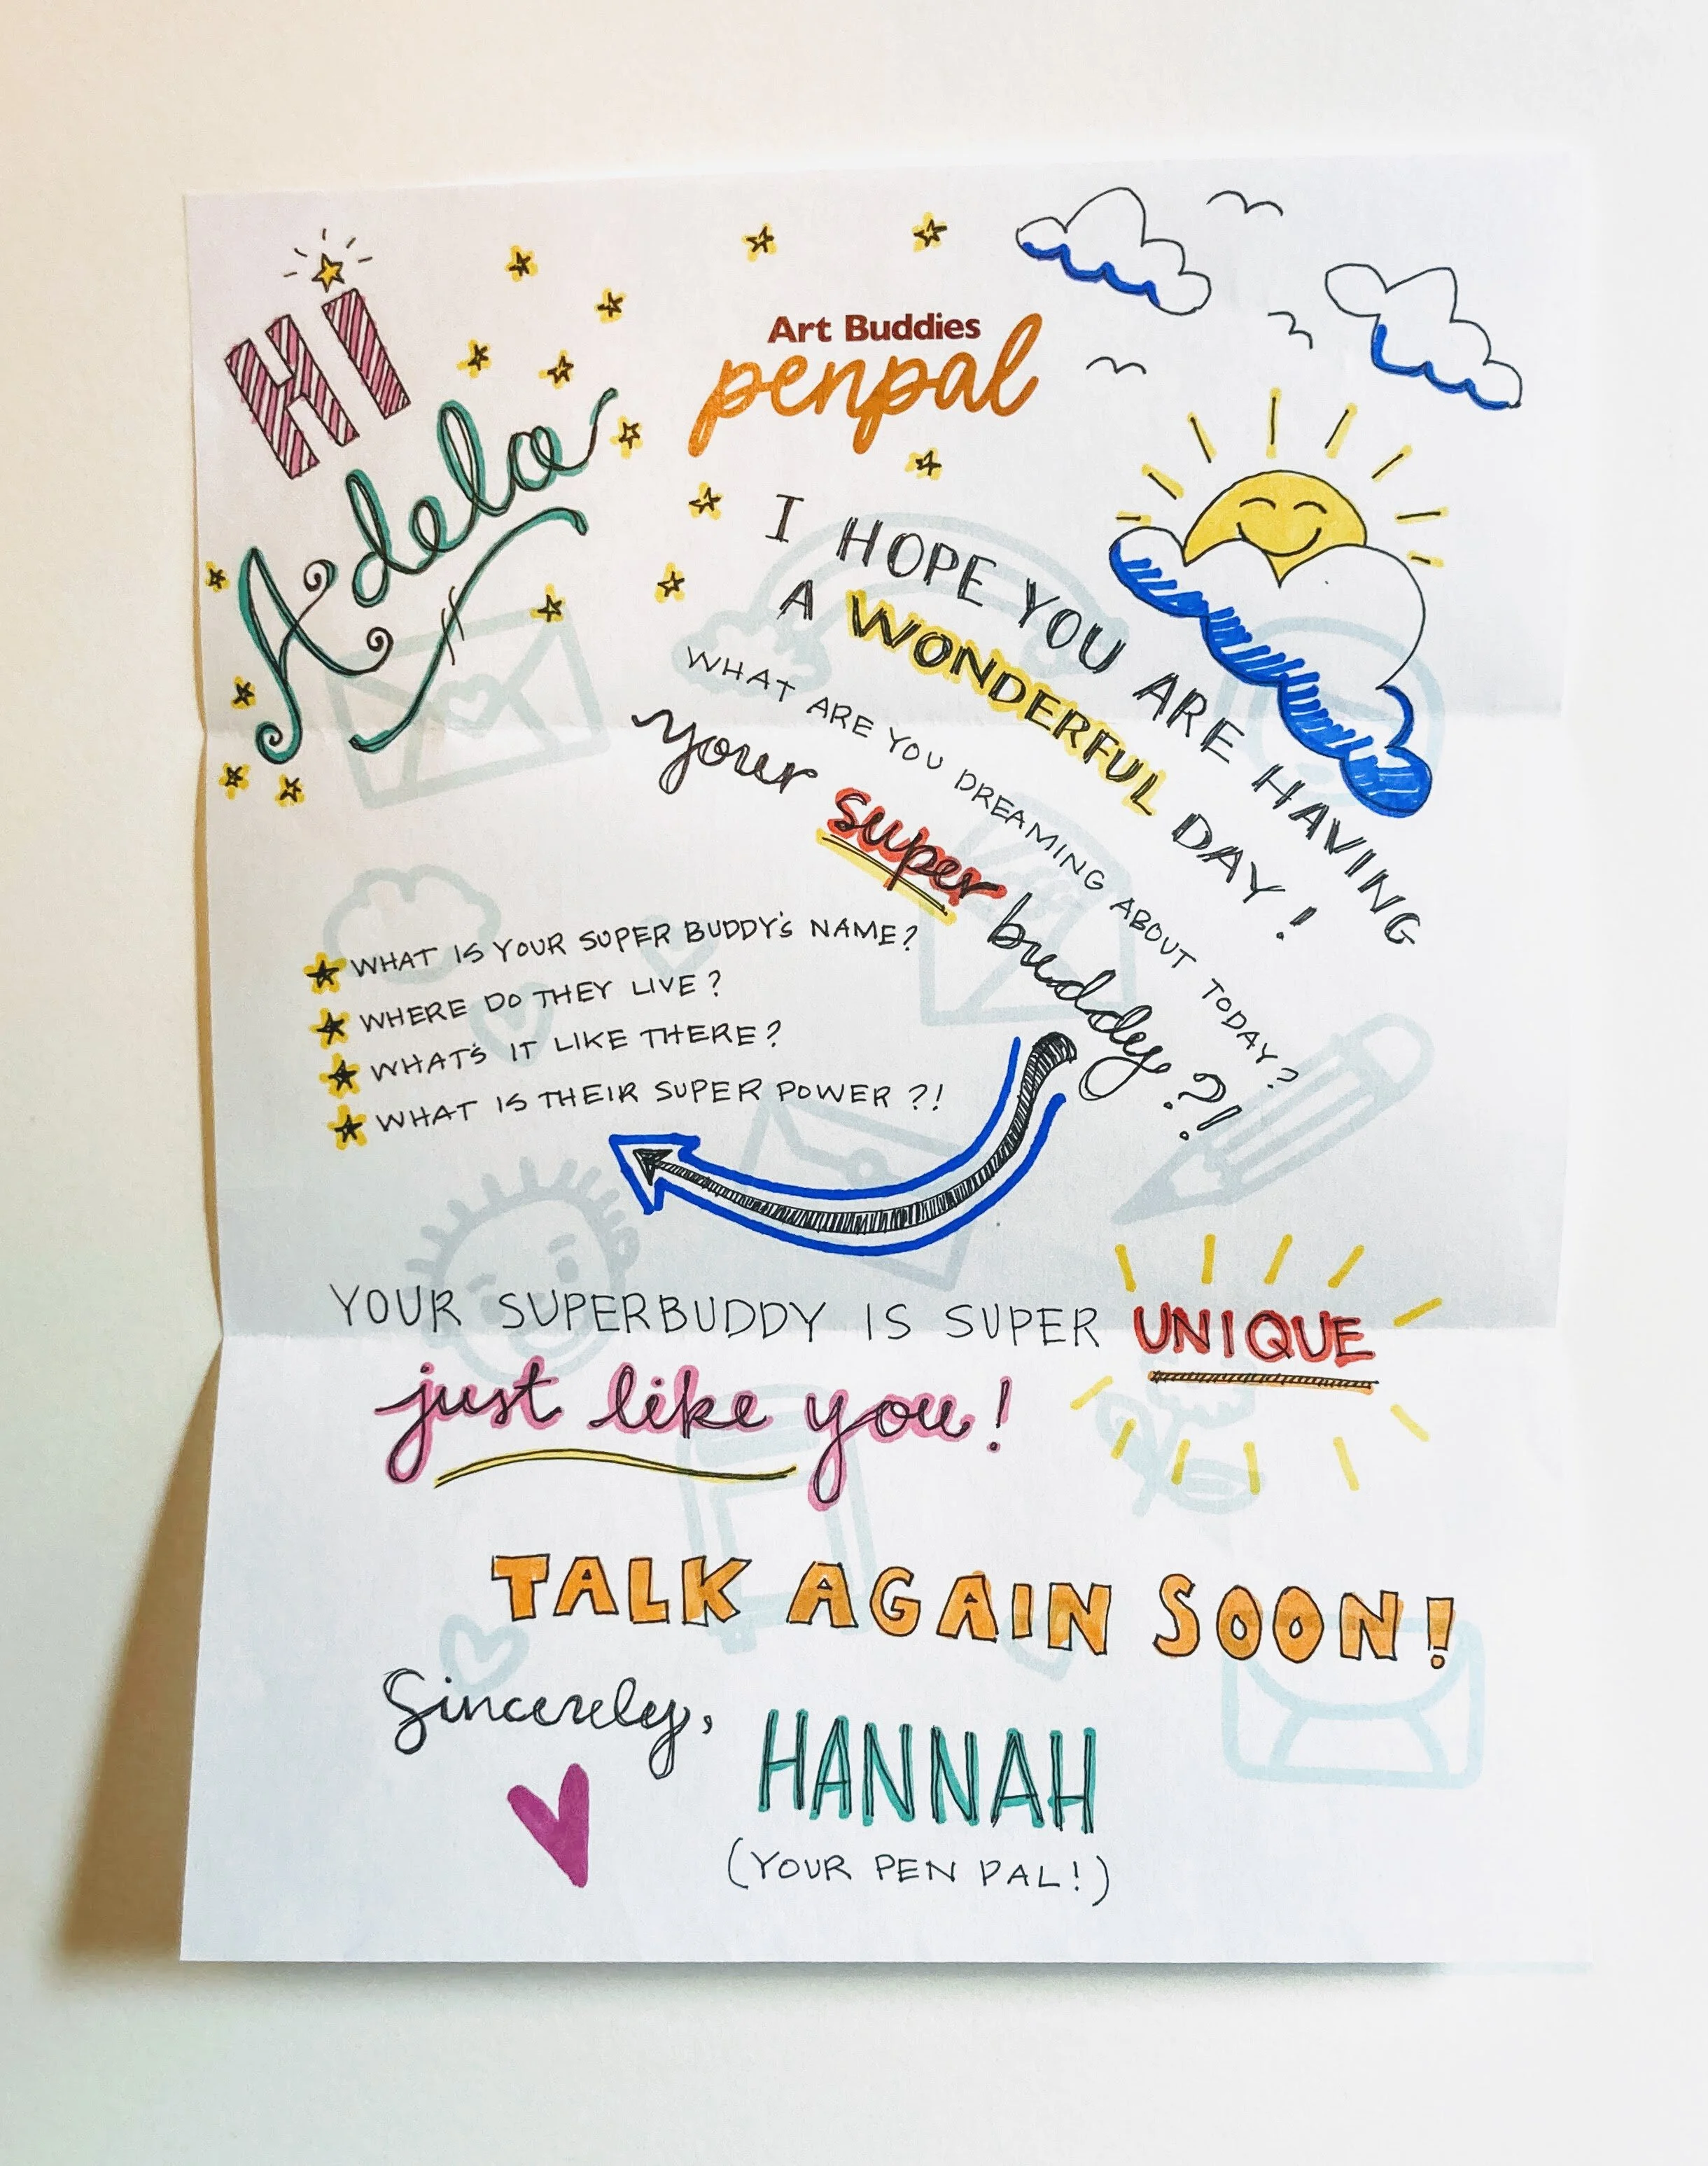 HI
Adela
Art Buddies
penpal
I HOPE YOU ARE HAVING
A WONDERFUL DAY!
WHAT ARE YOU DREAMING ABOUT TODAY?
your super buddy?!
WHAT IS YOUR SUPER BUDDY'S NAME?
WHERE DO THEY LIVE?
WHAT'S IT LIKE THERE?
WHAT IS THEIR SUPER POWER?!
YOUR SUPERBUDDY IS SUPER UNIQUE
just like you!
TALK AGAIN SOON!
Sincerely,
HANNAH
(YOUR PEN PAL!)